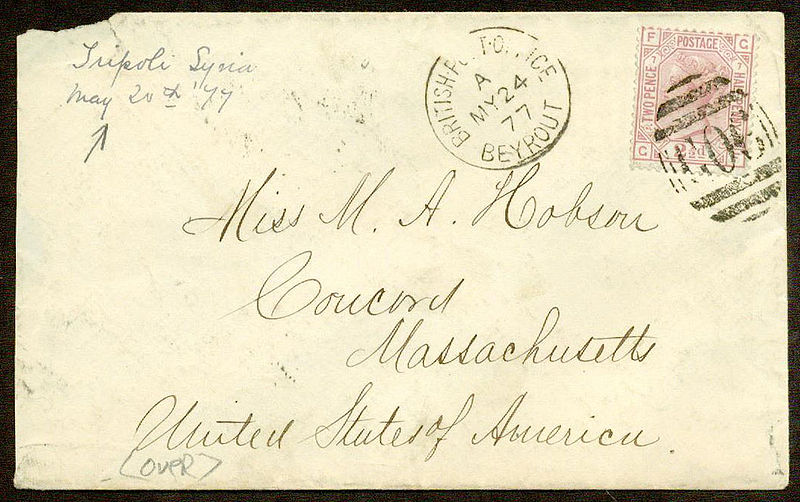 Tripoli Syria
May 20th '77
BRITISH POST-OFFICE
A
MY 24
77
BEYROUT
F POSTAGE G
TWO PENCE
HALF
G 2½d
G06
Miss M. A. Hobson
Concord
Massachusetts
United States of America.
(OVER)